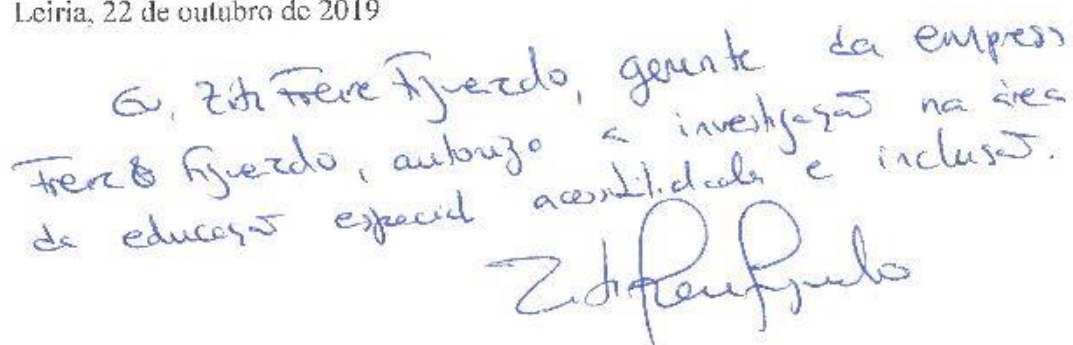 Leiria, 22 de outubro de 2019
Eu, Zita Freire Figueiredo, gerente da empresa
Freire & Figueiredo, autorizo a investigação na área
da educação especial acessibilidade e inclusão.
Zita Freire Figueiredo